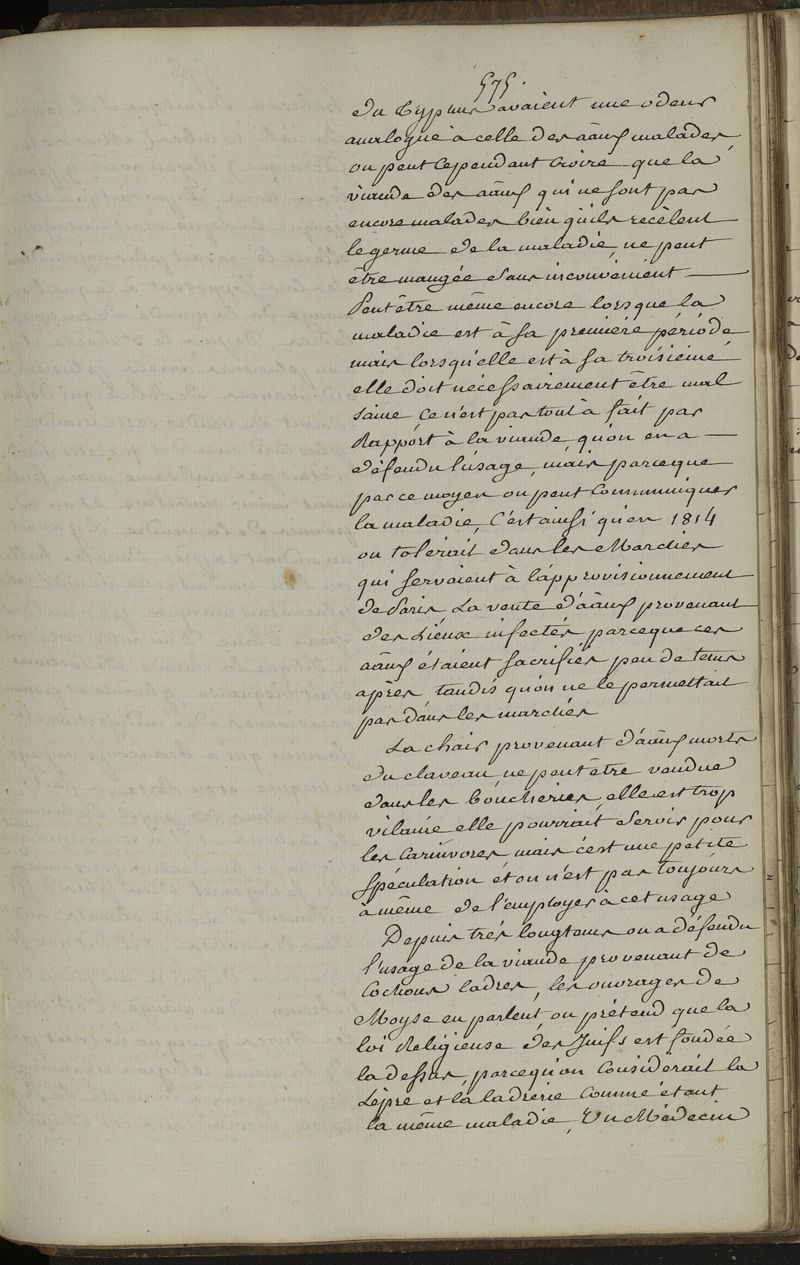 575.
du typhus avaient une odeur
analogue à celle des aâux malades
on peut Cependant Croire que la
viande des aâux qui ne sont pas
encore malades bien qu'ils recèlent
le germe de la maladie, ne peut
être mangée sans inconvénient
Peut être même encore lorsque la
maladie est à sa première période
mais lorsqu'elle est à sa troisième
elle doit nécessairement être mal
saine Ce n'est pas tout à fait par
Rapport à la viande qu'on en a
défendu l'usage, mais parceque
par ce moyen on peut Communiquer
la maladie, C'est ainsi qu'en 1814
on tolérait dans les Marchés
qui servaient à l'approvisionnement
de Paris La vente d'aâux provenant
des Lieux infectés parceque ces
aâux étaient sacrifiés peu de tems
après tandis qu'on ne le permettait
pas dans les marchés
La chair provenant d'aâux morts
du claveau ne peut être vendue
dans les boucheries, elle est trop
vilaine elle pourrait servir pour
les Carnivores mais c'est une petite
spéculation et on n'est pas toujours
à même de l'employer à cet usage
Depuis très longtems on a défendu
l'usage de la viande provenant de
Cochons ladres, les ouvrages de
Moyse en parlent, on prétend que la
loi Religieuse des Juifs est fondée
la dessus, parcequ'on Considérait la
Lèpre et la ladrerie Comme étant
la même maladie, Un Médecin